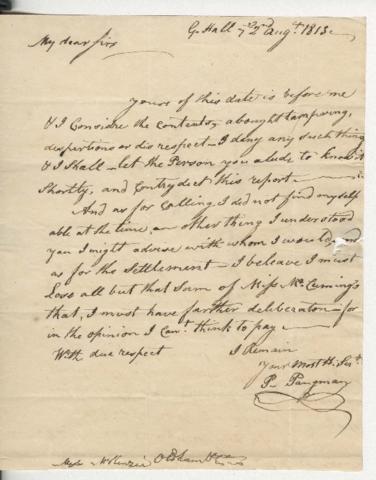 G. Hall 2nd Augt. 1813
My dear Sir
yours of this date is before me
& I Considre the Contents, abought tampring,
dispertions or dis respect — I deny any such thing
& I Shall — let the Person you alude to know it
Shortly, and Contrydect this report
And as for Calling, I did not find myself
able at the time, an other thing I understood
you I might advise with whom I would
as for the Settlement — I beleave I must
Loss all but that Sum of Miss Mc. Cuming's
that, I must have farther deliberaton — for
in the opinion I cant. think to pay
With due respect I Remain
Your Most H. Sert.
P. Pangman
McKenzie